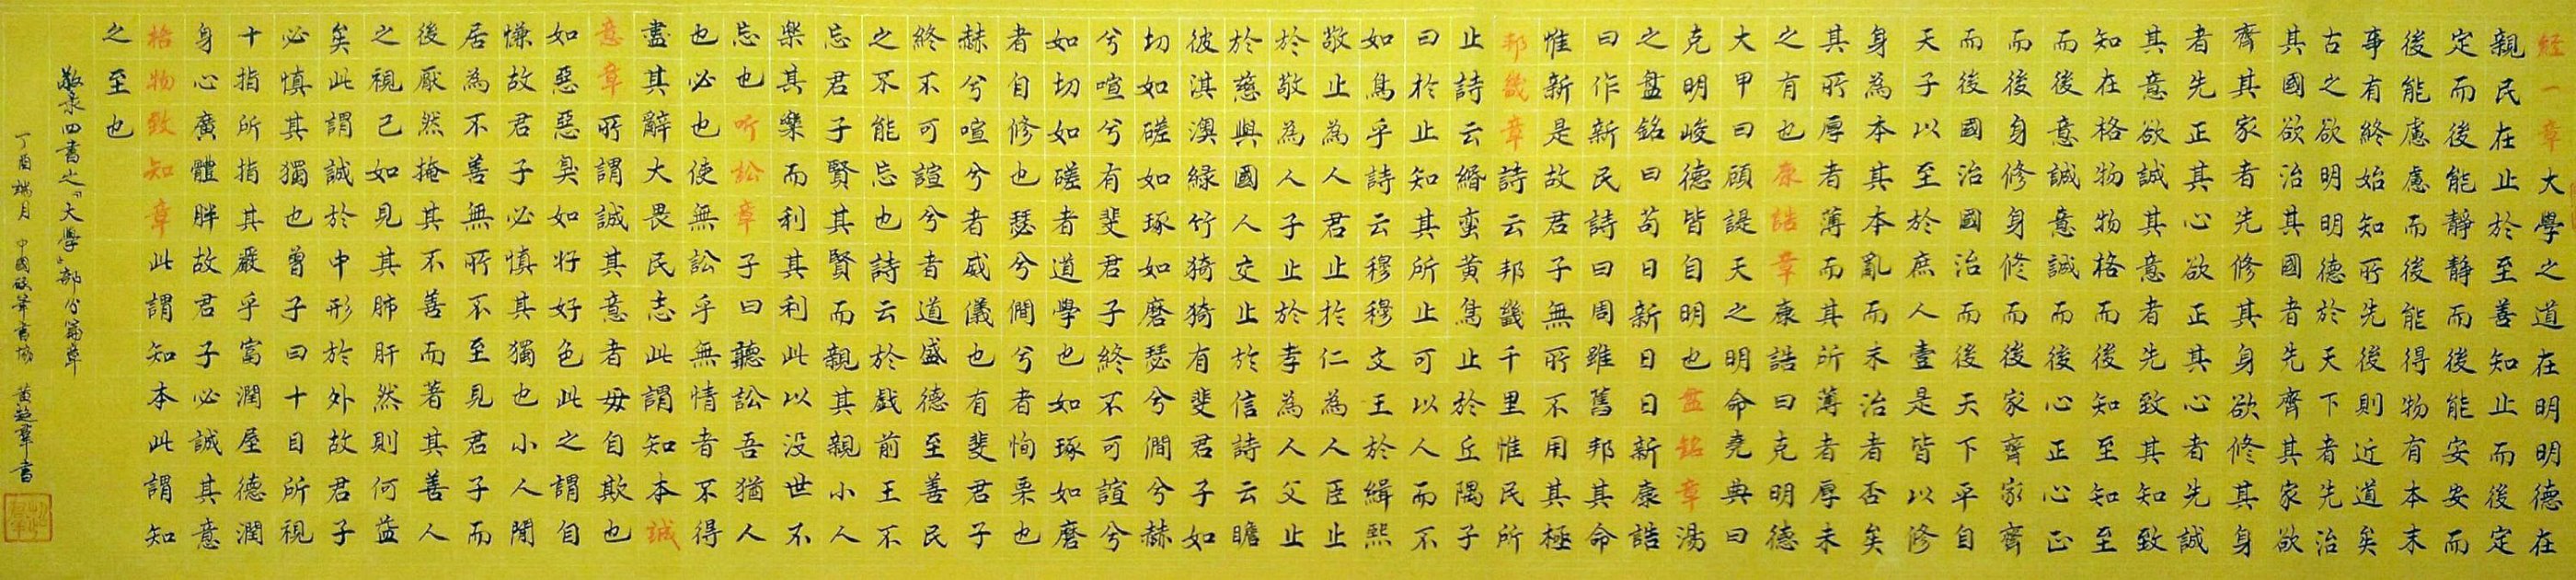 經一章大學之道在明明德在
親民在止於至善知止而後定
定而後能靜靜而後能安安而
後能慮慮而後能得物有本末
事有終始知所先後則近道矣
古之欲明明德於天下者先治
其國欲治其國者先齊其家欲
齊其家者先修其身欲修其身
者先正其心欲正其心者先誠
其意欲誠其意者先致其知致
知在格物物格而後知至知至
而後意誠意誠而後心正心正
而後身修身修而後家齊家齊
而後國治國治而後天下平自
天子以至於庶人壹是皆以修
身為本其本亂而末治者否矣
其所厚者薄而其所薄者厚未
之有也康誥章康誥曰克明德
大甲曰顧諟天之明命堯典曰
克明峻德皆自明也盤銘章湯
之盤銘曰苟日新日日新康誥
曰作新民詩曰周雖舊邦其命
惟新是故君子無所不用其極
邦畿章詩云邦畿千里惟民所
止詩云緡蛮黃鳥止於丘隅子
曰於止知其所止可以人而不
如鳥乎詩云穆穆文王於緝熙
敬止為人君止於仁為人臣止
於敬為人子止於孝為人父止
於慈與國人交止於信詩云瞻
彼淇澳綠竹猗猗有斐君子如
切如磋如琢如磨瑟兮僩兮赫
兮喧兮有斐君子終不可諠兮
如切如磋者道學也如琢如磨
者自修也瑟兮僩兮者恂栗也
赫兮喧兮者威儀也有斐君子
終不可諠兮者道盛德至善民
之不能忘也詩云於戲前王不
忘君子賢其賢而親其親小人
樂其樂而利其利此以沒世不
忘也听訟章子曰聽訟吾猶人
也必也使無訟乎無情者不得
盡其辭大畏民志此謂知本誠
意章所謂誠其意者毋自欺也
如惡惡臭如好好色此之謂自
慊故君子必慎其獨也小人閒
居為不善無所不至見君子而
後厭然掩其不善而著其善人
之視己如見其肺肝然則何益
矣此謂誠於中形於外故君子
必慎其獨也曾子曰十目所視
十指所指其嚴乎富潤屋德潤
身心廣體胖故君子必誠其意
格物致知章此謂知本此謂知
之至也
敬录四書之「大學」部分篇章
丁酉端月 中國硬筆書協 黃超群書